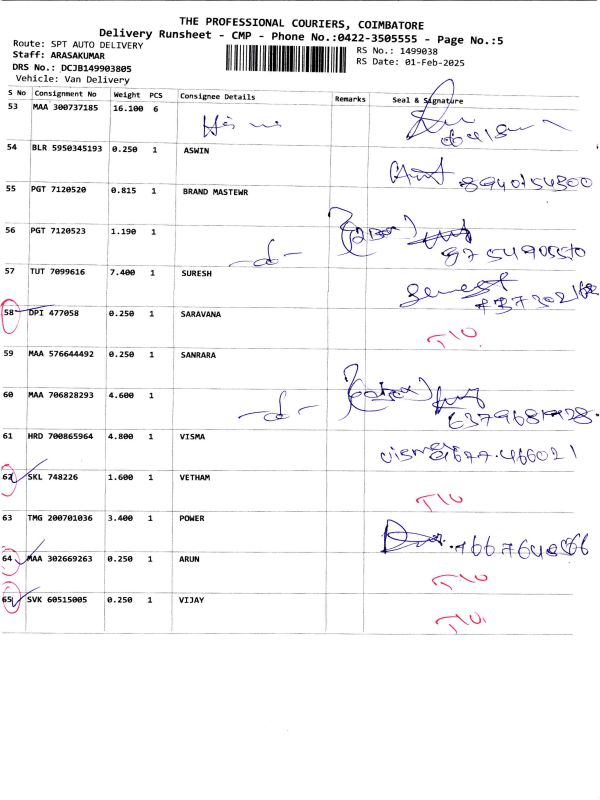 THE PROFESSIONAL COURIERS, COIMBATORE
Delivery Runsheet - CMP - Phone No.:0422-3505555 - Page No.:5
Route: SPT AUTO DELIVERY
Staff: ARASAKUMAR
RS No.: 1499038
DRS No.: DCJB149903805
RS Date: 01-Feb-2025
Vehicle: Van Delivery
S No Consignment No Weight PCS Consignee Details Remarks Seal & Signature
53 MAA 300737185 16.100 6
54 BLR 5950345193 0.250 1 ASWIN
55 PGT 7120520 0.815 1 BRAND MASTEWR
56 PGT 7120523 1.190 1 -d-
57 TUT 7099616 7.400 1 SURESH
58 DPI 477058 0.250 1 SARAVANA
59 MAA 576644492 0.250 1 SANRARA
60 MAA 706828293 4.600 1 -d-
61 HRD 700865964 4.800 1 VISMA
62 SKL 748226 1.600 1 VETHAM
63 TMG 200701036 3.400 1 POWER
64 MAA 302669263 0.250 1 ARUN
65 SVK 60515005 0.250 1 VIJAY